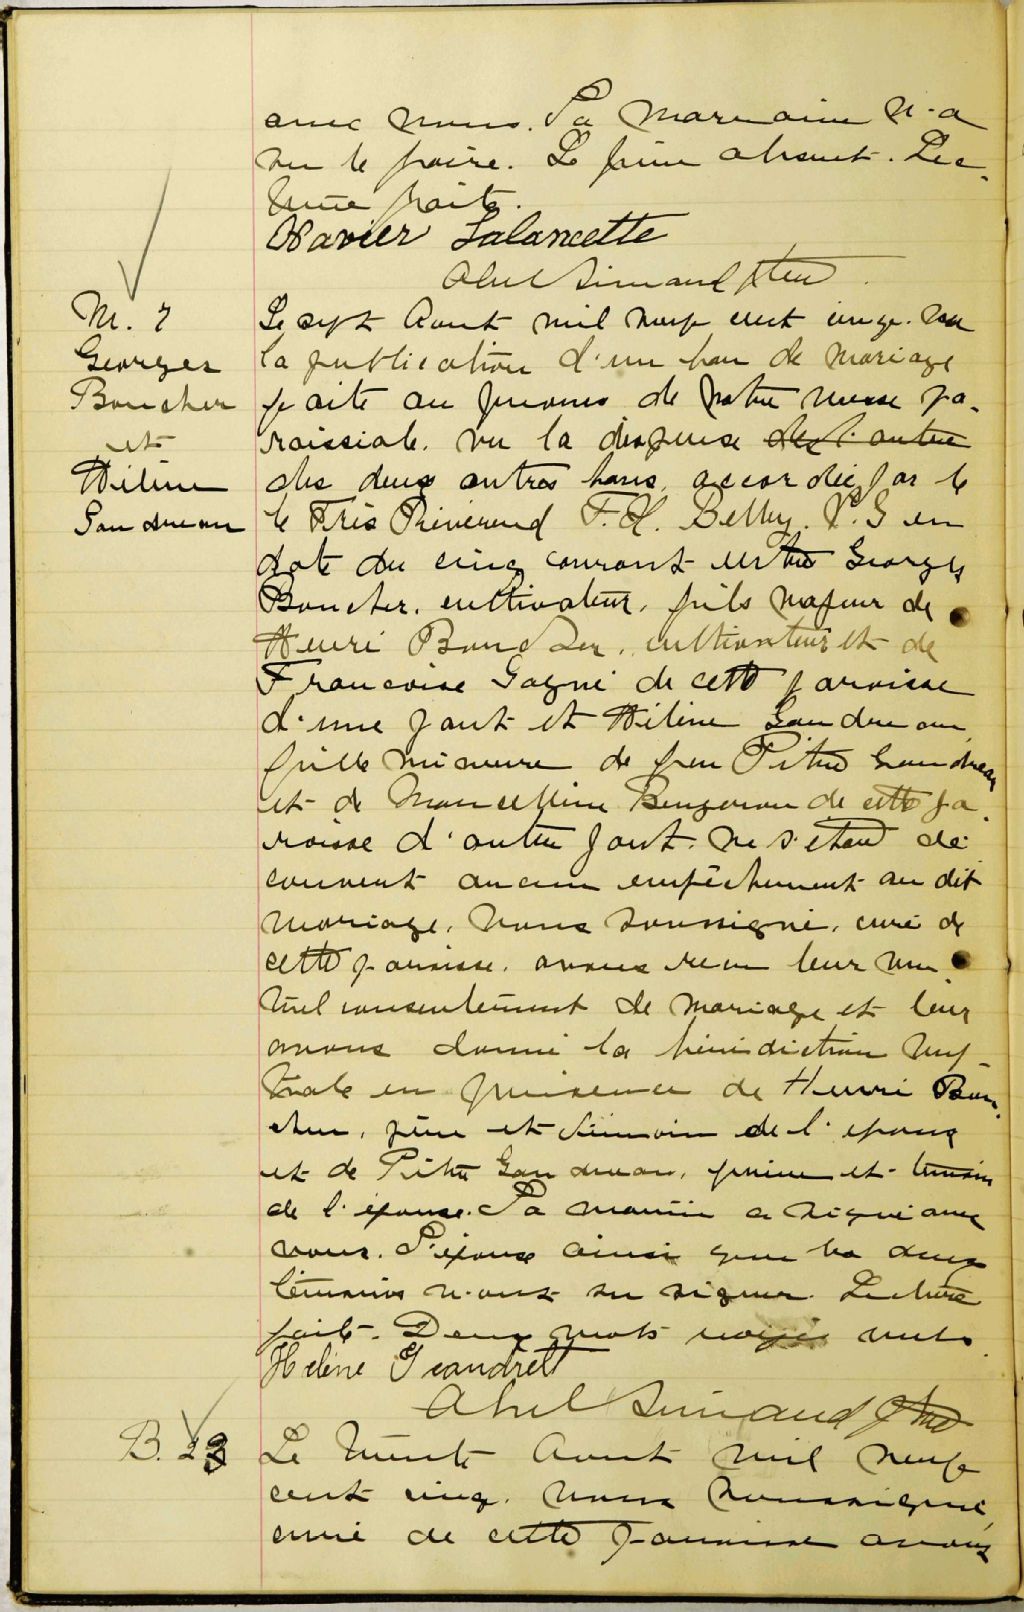 avec nous. La marraine n'a
su le faire. Le père absent. Lec-
ture faite.
Xavier Lalancette
Abel Simard Ptre
M. 7
Georges
Boucher
et
Hélène
Gaudreau
Le sept Aout mil neuf cent cinq. vu
la publication d'un ban de mariage
faite au prone de notre messe pa-
roissiale. vu la dispense de l'autre
des deux autres bans, accordée par le
le Très Révérend F. X. Belley. V. G en
date du cinq courant entre Georges
Boucher, cultivateur, fils majeur de
Henri Boucher, cultivateur et de
Francoise Gagné de cette paroisse
d'une part et Hélène Gaudreau
fille mineure de feu Pitre Gaudreau
et de Marcelline Bergeron de cette pa-
roisse d'autre part. ne s'étant dé-
couvert aucun empêchement au dit
mariage, nous soussigné, curé de
cette paroisse, avons recu leur mu-
tuel consentement de mariage et leur
avons donné la bénédiction nup-
tiale en présence de Henri Bou-
cher, père et témoin de l'époux
et de Pitre Gaudreau, frère et témoin
de l'épouse. La mariée a signé avec
nous. L'époux ainsi que les deux
témoins n'ont su signer. Lecture
faite. Deux mots rayés nuls.
Helène Geandrett
Abel Simard Ptre
B. 23
Le trente Aout mil neuf
cent cinq, nous soussigné,
curé de cette paroisse avons